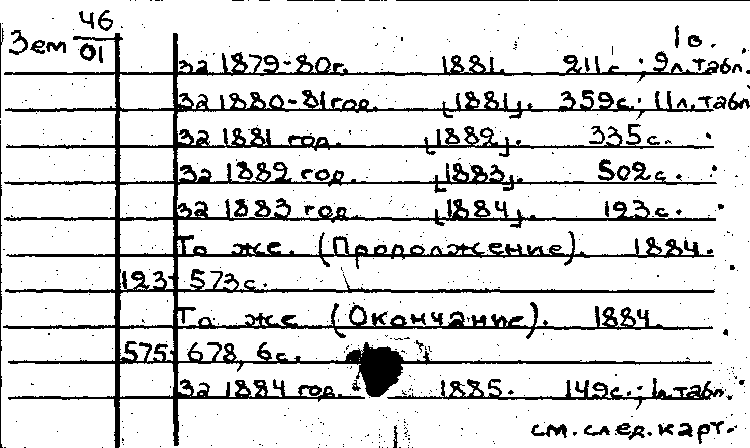 Зем 46/01
1 о.
за 1879-80г. 1881. 211с.; 9л.табл.
за 1880-81год. [1881]. 359с.; 11л.табл
за 1881 год. [1882]. 335с.
за 1882 год. [1883]. 502с.
за 1883 год [1884]. 123с.
То же. (Продолжение). 1884.
123-573с.
То же (Окончание). 1884.
575-678, 6с.
за 1884 год. 1885. 149с.; 1л.табл.
см. след. карт.